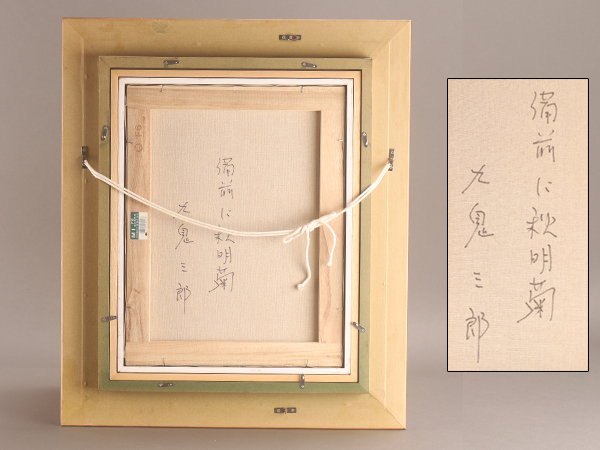 備前に秋明菊
九鬼三郎
備前に秋明菊
九鬼三郎